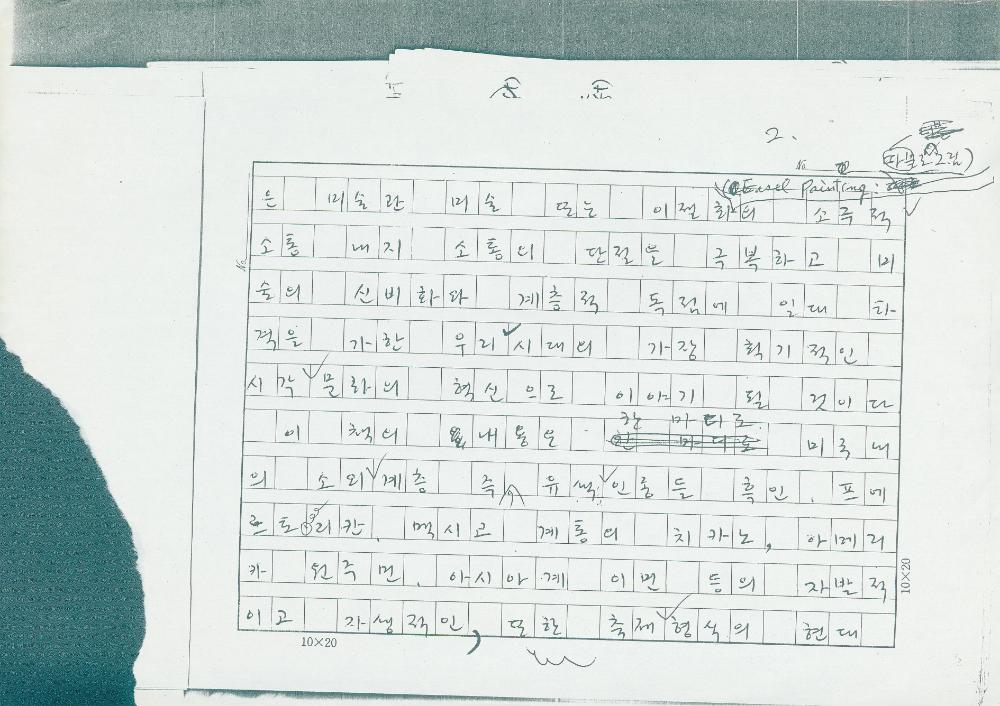 2.
타블로 그림)
No
(Easel Painting :
은 미술관 미술 또는 이젤화의 소극적
소통 내지 소통의 단절을 극복하고 미
No
술의 신비화와 계층적 독점에 일대 타
격을 가한 우리 시대의 가장 획기적인
시각 문화의 혁신으로 이야기 될 것이다
한 마디로
이 책의 내용은 미국내
의 소외 계층 즉 유색 인종들 흑인, 푸에
르토리칸, 멕시코 계통의 치카노, 아메리
카 원주민, 아시아계 이민 등의 자발적
이고 자생적인, 또한 축제 형식의 현대
10×20
10×20